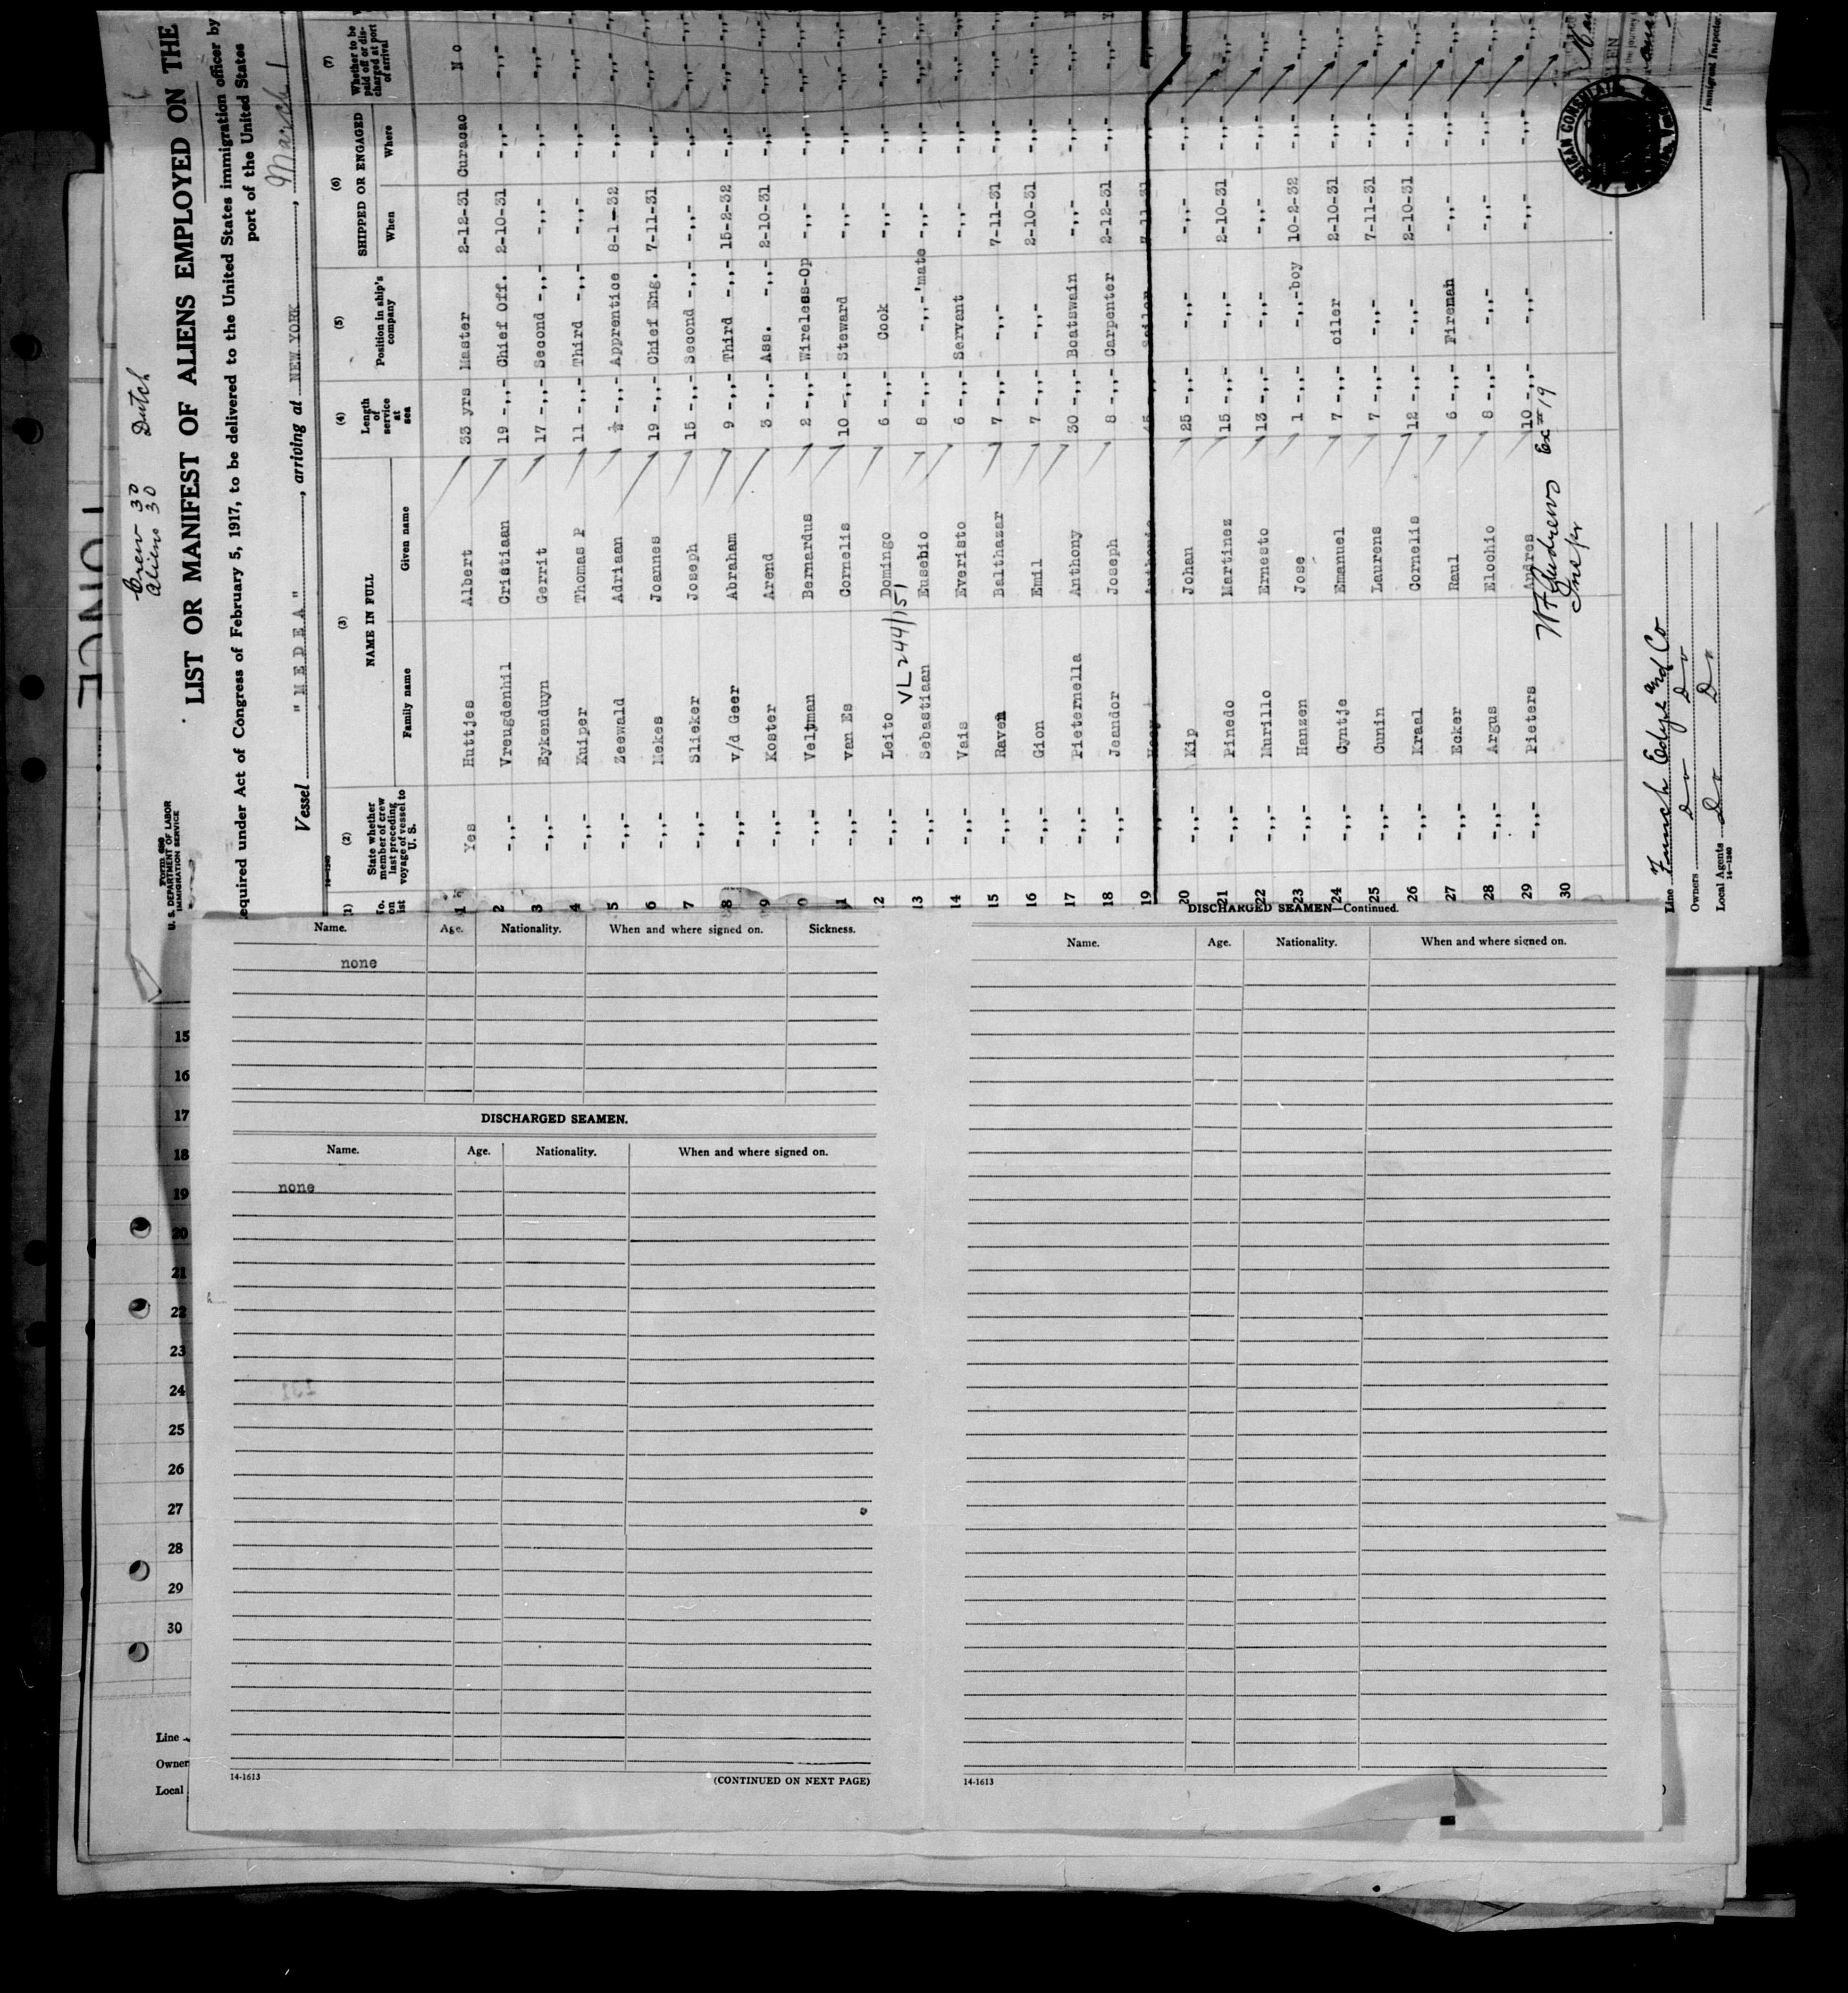 Crew 30
Aliens 30 Dutch
Form 680
U. S. DEPARTMENT OF LABOR
IMMIGRATION SERVICE
LIST OR MANIFEST OF ALIENS EMPLOYED ON THE
equired under Act of Congress of February 5, 1917, to be delivered to the United States immigration officer by
port of the United States
Vessel " M E D E A ", arriving at NEW YORK, March 1
14-1240
(1) (2) (3) (4) (5) (6) (7)
No. on list State whether member of crew last preceding voyage of vessel to U. S. NAME IN FULL Length of service at sea Position in ship's company SHIPPED OR ENGAGED Whether to be paid off or discharged at port of arrival
Family name Given name When Where
1 Yes Huttjes Albert 33 yrs Master 2-12-31 Curacao No
2 -,,- Vreugdenhil Cristiaan 19 -,,- Chief Off. 2-10-31 -,,- -,,-
3 -,,- Eykenduyn Gerrit 17 -,,- Second -,,- -,,- -,,- -,,-
4 -,,- Kuiper Thomas P 11 -,,- Third -,,- -,,- -,,- -,,-
5 -,,- Zeewald Adriaan ½ -,,- Apprentice 8-1--32 -,,- -,,-
6 -,,- Mekes Joannes 19 -,,- Chief Eng. 7-11-31 -,,- -,,-
7 -,,- Slieker Joseph 15 -,,- Second -,,- -,,- -,,- -,,-
8 -,,- v/d Geer Abraham 9 -,,- Third -,,- 15-2-32 -,,- -,,-
9 -,,- Koster Arend 3 -,,- Ass. -,,- 2-10-31 -,,- -,,-
0 -,,- Veltman Bernardus 2 -,,- Wireless-Op -,,- -,,- -,,-
11 -,,- van Es Cornelis 10 -,,- Steward -,,- -,,- -,,-
12 -,,- Leito Domingo 6 -,,- Cook -,,- -,,- -,,-
VL 244/151
13 -,,- Sebastiaan Eusebio 8 -,,- -,,-'mate -,,- -,,- -,,-
14 -,,- Vais Everisto 6 -,,- Servant -,,- -,,- -,,-
15 -,,- Raven Balthazar 7 -,,- -,,- 7-11-31 -,,- -,,-
16 -,,- Gion Emil 7 -,,- -,,- 2-10-31 -,,- -,,-
17 -,,- Pieternella Anthony 30 -,,- Boatswain -,,- -,,- -,,-
18 -,,- Jeandor Joseph 8 -,,- Carpenter 2-12-31 -,,- -,,-
19 -,,- Sailor 7-11-31 -,,-
20 -,,- Kip Johan 25 -,,- -,,- -,,- -,,- -,,-
21 -,,- Pinedo Martinez 15 -,,- -,,- 2-10-31 -,,- -,,-
22 -,,- Murillo Ernesto 13 -,,- -,,- -,,- -,,- -,,-
23 -,,- Hanzen Jose 1 -,,- -,,-boy 10-2-32 -,,- -,,-
24 -,,- Cyntje Emanuel 7 -,,- oiler 2-10-31 -,,- -,,-
25 -,,- Cunin Laurens 7 -,,- -,,- 7-11-31 -,,- -,,-
26 -,,- Kraal Cornelis 12 -,,- -,,- 2-10-31 -,,- -,,-
27 -,,- Ecker Raul 6 -,,- Fireman -,,- -,,- -,,-
28 -,,- Argus Elochio 8 -,,- -,,- -,,- -,,- -,,-
29 -,,- Pieters Andres 10 -,,- -,,- -,,- -,,- -,,-
30
Andrews Ex 19
Inspr
AMERICAN CONSULATE
Line Funch Edye and Co
Owners Do Do
Local Agents Do Do
14-1240
Immigrant Inspector.
Name. Age. Nationality. When and where signed on. Sickness.
none
DISCHARGED SEAMEN.
Name. Age. Nationality. When and where signed on.
none
14-1613
(CONTINUED ON NEXT PAGE)
DISCHARGED SEAMEN—Continued.
Name. Age. Nationality. When and where signed on.
14-1613
15
16
17
18
19
20
21
22
23
24
25
26
27
28
29
30
Line
Owner
Local